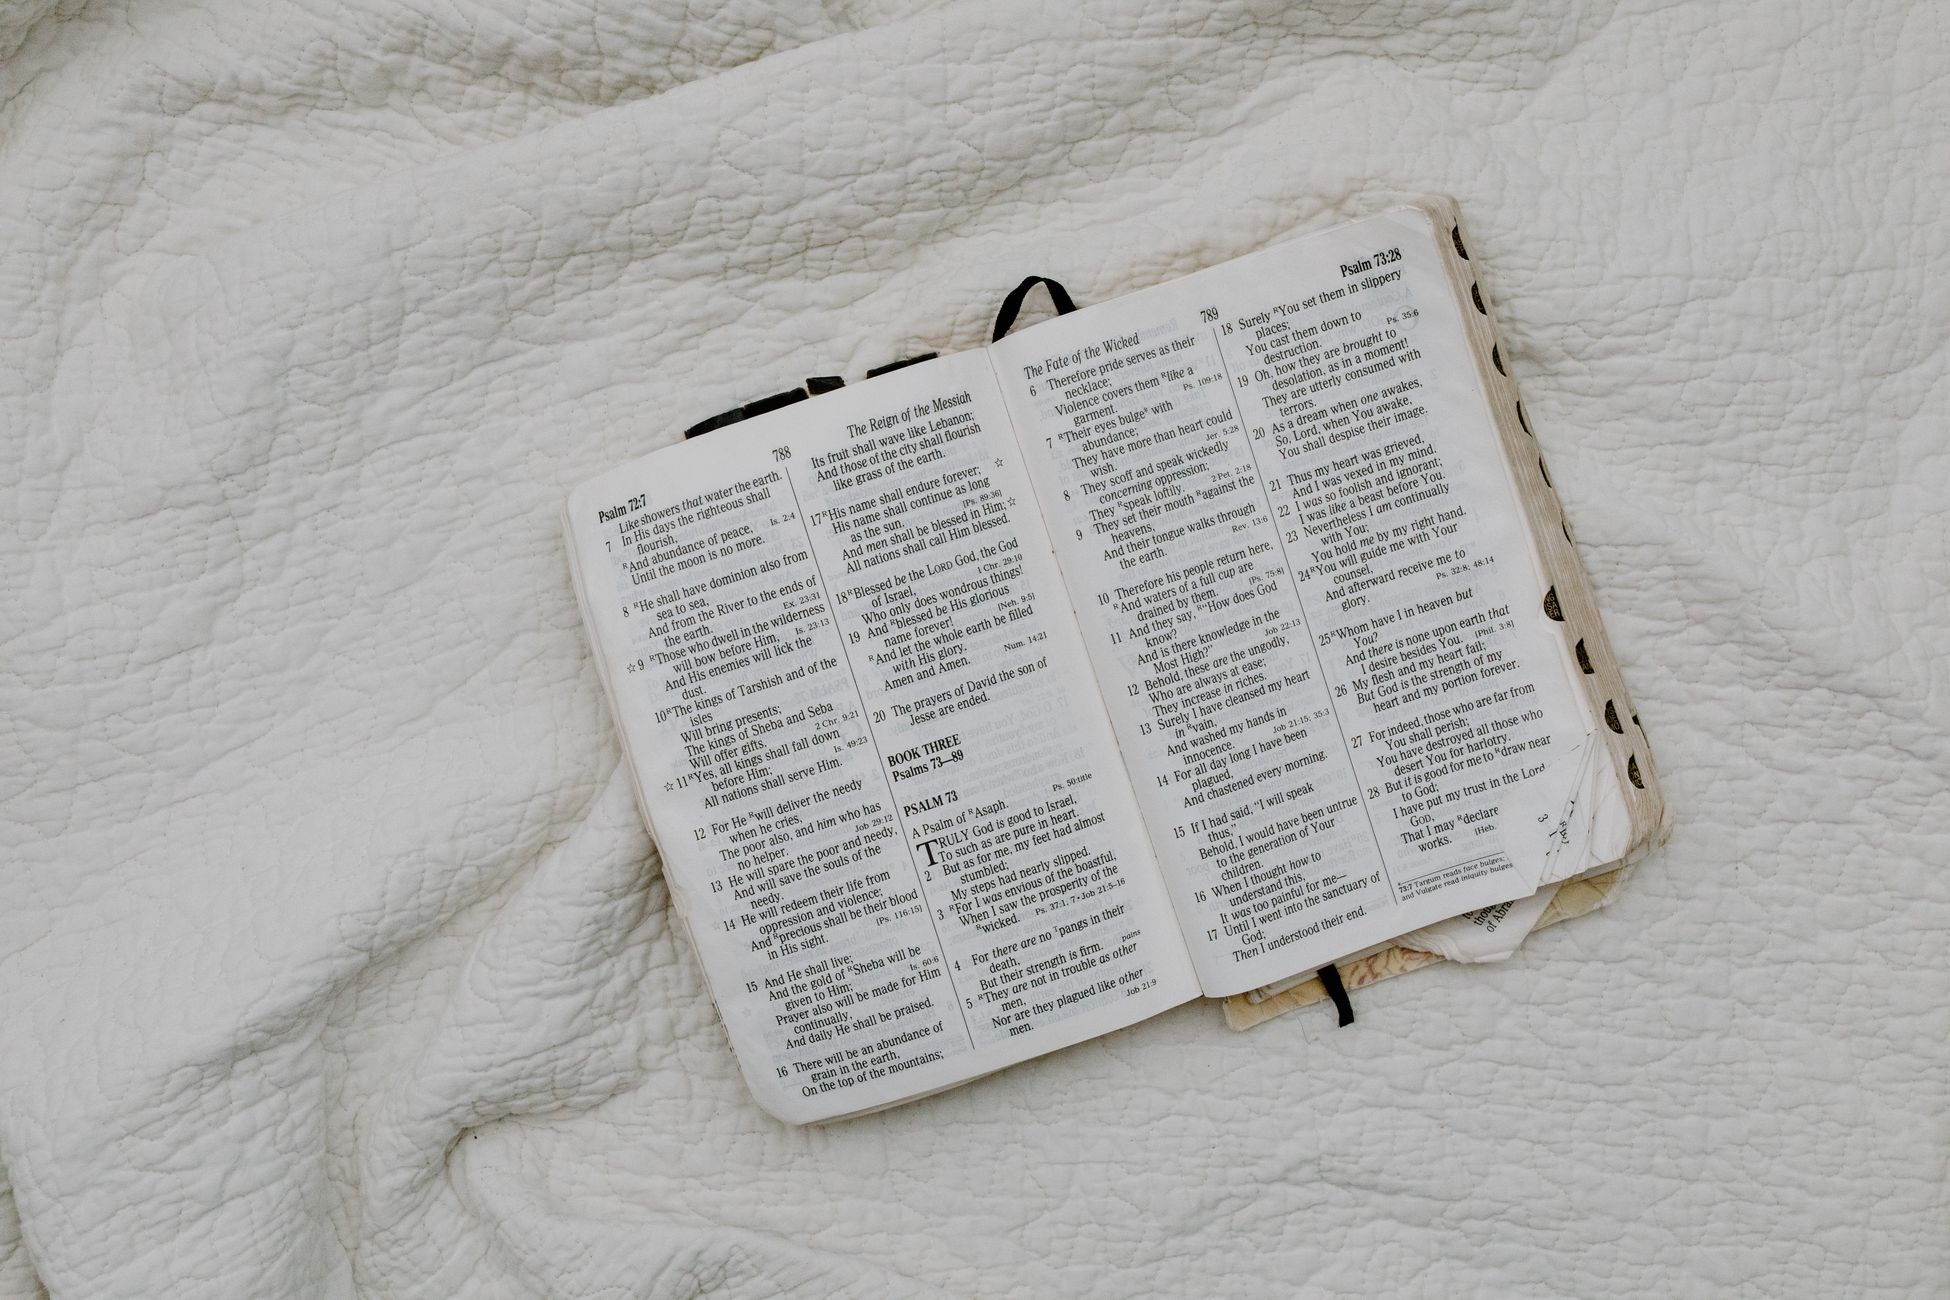 Psalm 72:7
788
The Reign of the Messiah
Like showers that water the earth.
7 In His days the righteous shall
flourish,
ᴿAnd abundance of peace, Is. 2:4
Until the moon is no more.
8 ᴿHe shall have dominion also from
sea to sea,
And from the River to the ends of
the earth. Ex. 23:31
☆9 ᴿThose who dwell in the wilderness
will bow before Him, Is. 23:13
And His enemies will lick the
dust.
10ᴿThe kings of Tarshish and of the
isles
Will bring presents;
The kings of Sheba and Seba
Will offer gifts. 2 Chr. 9:21
☆11ᴿYes, all kings shall fall down
before Him; Is. 49:23
All nations shall serve Him.
12 For He ᴿwill deliver the needy
when he cries,
The poor also, and him who has
no helper. Job 29:12
13 He will spare the poor and needy,
And will save the souls of the
needy.
14 He will redeem their life from
oppression and violence;
And ᴿprecious shall be their blood
in His sight. [Ps. 116:15]
15 And He shall live;
And the gold of ᴿSheba will be
given to Him; Is. 60:6
Prayer also will be made for Him
continually,
And daily He shall be praised.
16 There will be an abundance of
grain in the earth,
On the top of the mountains;
Its fruit shall wave like Lebanon;
And those of the city shall flourish
like grass of the earth.
17ᴿHis name shall endure forever; ☆
His name shall continue as long
as the sun. [Ps. 89:36]
And men shall be blessed in Him; ☆
All nations shall call Him blessed.
18ᴿBlessed be the LORD God, the God
of Israel, 1 Chr. 29:10
Who only does wondrous things!
19 And ᴿblessed be His glorious
name forever! [Neh. 9:5]
ᴿAnd let the whole earth be filled
with His glory. Num. 14:21
Amen and Amen.
20 The prayers of David the son of
Jesse are ended.
BOOK THREE
Psalms 73—89
PSALM 73
A Psalm of ᴿAsaph. Ps. 50:title
TRULY God is good to Israel,
To such as are pure in heart.
2 But as for me, my feet had almost
stumbled;
My steps had nearly slipped.
3 ᴿFor I was envious of the boastful,
When I saw the prosperity of the
ᴿwicked. Ps. 37:1, 7 • Job 21:5–16
4 For there are no ᵀpangs in their
death, pains
But their strength is firm.
5 ᴿThey are not in trouble as other
men,
Nor are they plagued like other
men. Job 21:9
The Fate of the Wicked
789
Psalm 73:28
6 Therefore pride serves as their
necklace;
Violence covers them ᴿlike a
garment. Ps. 109:18
7 ᴿTheir eyes bulgeᴿ with
abundance;
They have more than heart could
wish. Jer. 5:28
8 They scoff and speak wickedly
concerning oppression;
They ᴿspeak loftily. 2 Pet. 2:18
9 They set their mouth ᴿagainst the
heavens,
And their tongue walks through
the earth. Rev. 13:6
10 Therefore his people return here,
ᴿAnd waters of a full cup are
drained by them. [Ps. 75:8]
11 And they say, ᴿ“How does God
know?
And is there knowledge in the
Most High?” Job 22:13
12 Behold, these are the ungodly,
Who are always at ease;
They increase in riches.
13 Surely I have cleansed my heart
in ᴿvain,
And washed my hands in
innocence. Job 21:15; 35:3
14 For all day long I have been
plagued,
And chastened every morning.
15 If I had said, “I will speak
thus,”
Behold, I would have been untrue
to the generation of Your
children.
16 When I thought how to
understand this,
It was too painful for me—
17 Until I went into the sanctuary of
God;
Then I understood their end.
18 Surely ᴿYou set them in slippery
places;
You cast them down to
destruction. Ps. 35:6
19 Oh, how they are brought to
desolation, as in a moment!
They are utterly consumed with
terrors.
20 As a dream when one awakes,
So, Lord, when You awake,
You shall despise their image.
21 Thus my heart was grieved,
And I was vexed in my mind.
22 I was so foolish and ignorant;
I was like a beast before You.
23 Nevertheless I am continually
with You;
You hold me by my right hand.
24ᴿYou will guide me with Your
counsel,
And afterward receive me to
glory. Ps. 32:8; 48:14
25ᴿWhom have I in heaven but
You?
And there is none upon earth that
I desire besides You. [Phil. 3:8]
26 My flesh and my heart fail;
But God is the strength of my
heart and my portion forever.
27 For indeed, those who are far from
You shall perish;
You have destroyed all those who
desert You for harlotry.
28 But it is good for me to ᴿdraw near
to God;
I have put my trust in the Lord
GOD,
That I may ᴿdeclare
works. [Heb.
73:7 Targum reads face bulges;
and Vulgate read iniquity bulges
of Abra